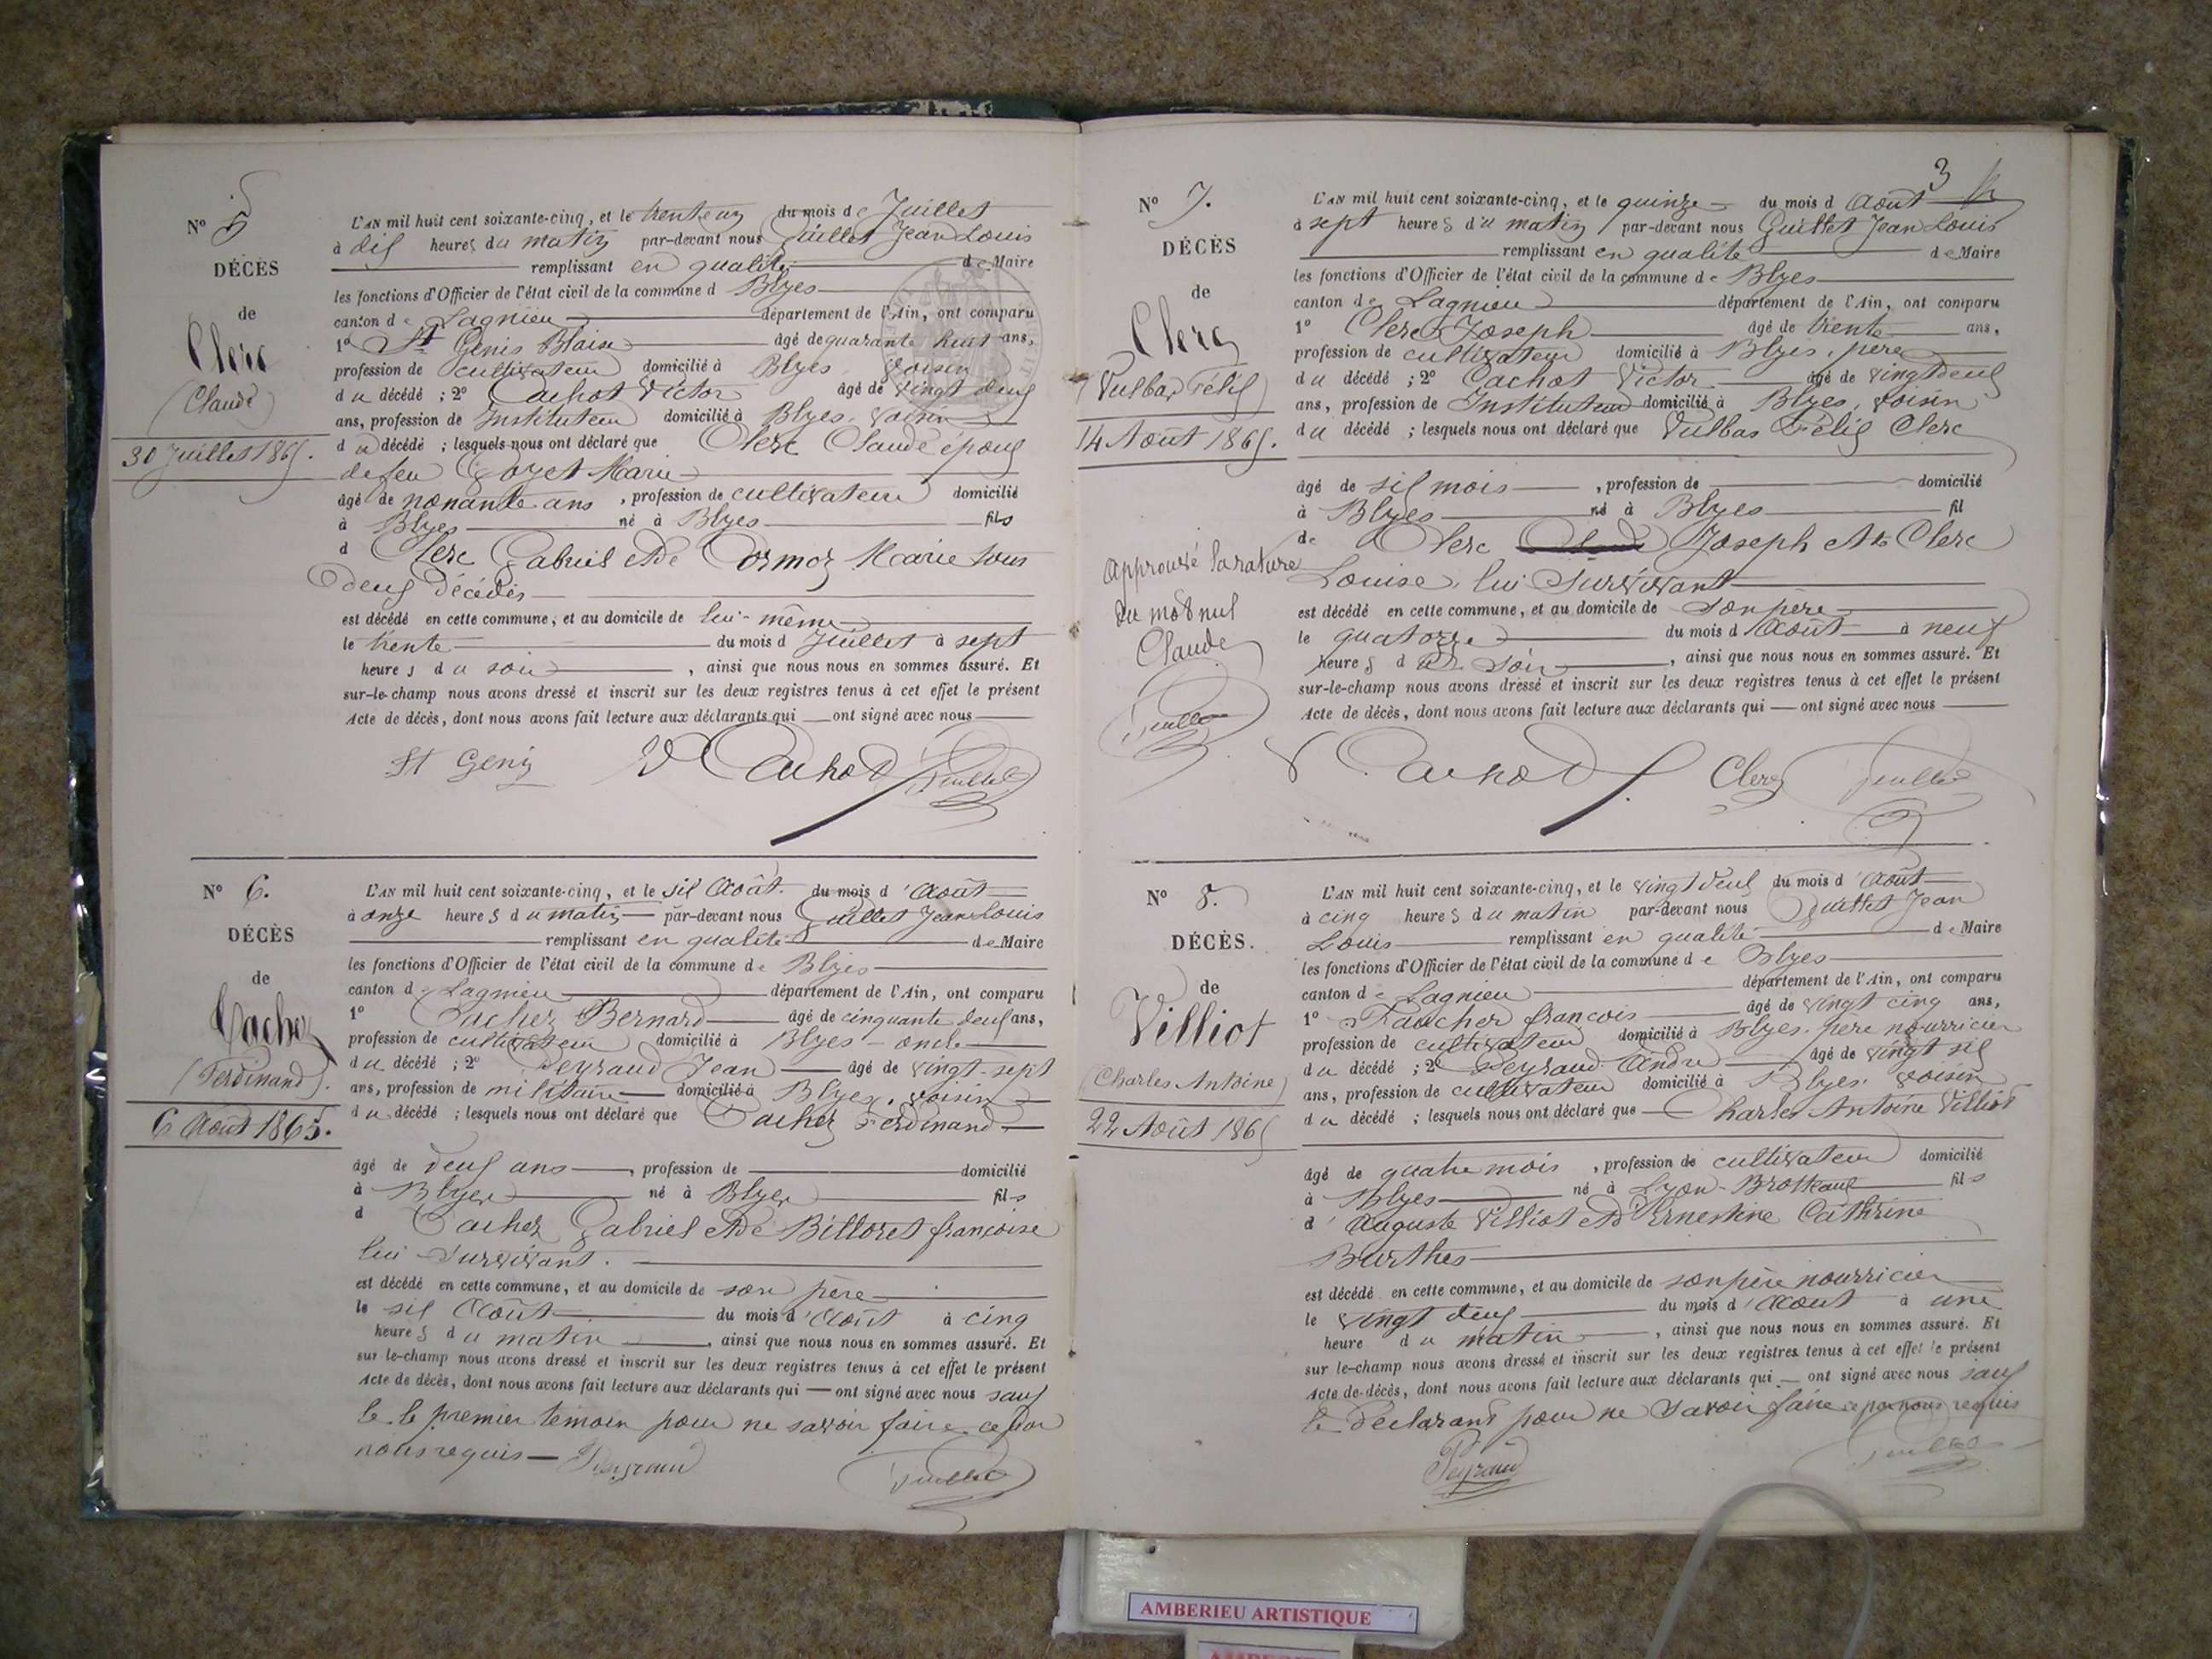 N° 5
DÉCÈS
de
Clerc
(Claude)
30 Juillet 1865.
L'AN mil huit cent soixante-cinq, et le trente un du mois de Juillet
à dix heures du matin par-devant nous Guillet Jean Louis
remplissant en qualité de Maire
les fonctions d'Officier de l'état civil de la commune d Blyes
canton de Lagnieu département de l'Ain, ont comparu
1° St Genis Blaise âgé de quarante huit ans,
profession de cultivateur domicilié à Blyes voisin
du décédé ; 2° Cachot Victor âgé de vingt deux
ans, profession de Instituteur domicilié à Blyes, voisin
du décédé ; lesquels nous ont déclaré que Clerc Claude époux
de feu Goyet Marie
âgé de nonante ans , profession de cultivateur domicilié
à Blyes né à Blyes fils
d Clerc Gabriel et de Cormoz Marie tous
deux décédés
est décédé en cette commune, et au domicile de lui-même
le trente du mois d Juillet à sept
heures du soir , ainsi que nous nous en sommes assuré. Et
sur-le-champ nous avons dressé et inscrit sur les deux registres tenus à cet effet le présent
Acte de décès, dont nous avons fait lecture aux déclarants qui ont signé avec nous
St Genis V Cachot Guillet
N° 6.
DÉCÈS
de
Cachez
(Ferdinand).
6 Août 1865.
L'AN mil huit cent soixante-cinq, et le six Août du mois d'Août
à onze heures du matin par-devant nous Guillet Jean Louis
remplissant en qualité de Maire
les fonctions d'Officier de l'état civil de la commune de Blyes
canton de Lagnieu département de l'Ain, ont comparu
1° Cachez Bernard âgé de cinquante deux ans,
profession de cultivateur domicilié à Blyes - oncle
du décédé ; 2° Peyraud Jean âgé de vingt-sept
ans, profession de militaire domicilié à Blyes, voisin
du décédé ; lesquels nous ont déclaré que Cachez Ferdinand
âgé de deux ans , profession de domicilié
à Blyes né à Blyes fils
d Cachez Gabriel et de Billoret françoise
lui survivant.
est décédé en cette commune, et au domicile de son père
le six Août du mois d'Août à cinq
heures du matin , ainsi que nous nous en sommes assuré. Et
sur le-champ nous avons dressé et inscrit sur les deux registres tenus à cet effet le présent
Acte de décès, dont nous avons fait lecture aux déclarants qui ont signé avec nous sauf
le le premier témoin pour ne savoir faire ce par
nous requis Peyraud Guillet
3
N° 7.
DÉCÈS
de
Clerc
(Vulbas Félix)
14 Août 1865.
Approuvé la rature
du mot nul
Claude
Guillet
L'AN mil huit cent soixante-cinq, et le quinze du mois d Août
à sept heures du matin par-devant nous Guillet Jean Louis
remplissant en qualité de Maire
les fonctions d'Officier de l'état civil de la commune de Blyes
canton de Lagnieu département de l'Ain, ont comparu
1° Clerc Joseph âgé de trente ans,
profession de cultivateur domicilié à Blyes, père
du décédé ; 2° Cachot Victor âgé de vingt deux
ans, profession de Instituteur domicilié à Blyes, voisin
du décédé ; lesquels nous ont déclaré que Vulbas Félix Clerc
âgé de six mois , profession de domicilié
à Blyes né à Blyes fil
de Clerc Claude Joseph et de Clerc
Louise, lui survivant
est décédé en cette commune, et au domicile de son père
le quatorze du mois d'Août à neuf
heures d du soir , ainsi que nous nous en sommes assuré. Et
sur-le-champ nous avons dressé et inscrit sur les deux registres tenus à cet effet le présent
Acte de décès, dont nous avons fait lecture aux déclarants qui ont signé avec nous
V Cachot Clerc Guillet
N° 8.
DÉCÈS.
de
Villiot
(Charles Antoine)
22 Août 1865
L'AN mil huit cent soixante-cinq, et le vingt deux du mois d'Août
à cinq heures du matin par-devant nous Guillet Jean
Louis remplissant en qualité de Maire
les fonctions d'Officier de l'état civil de la commune de Blyes
canton de Lagnieu département de l'Ain, ont comparu
1° Faucher françois âgé de vingt cinq ans,
profession de cultivateur domicilié à Blyes, père nourricier
du décédé ; 2° Peyraud André âgé de vingt six
ans, profession de cultivateur domicilié à Blyes, voisin
du décédé ; lesquels nous ont déclaré que Charles Antoine Villiot
âgé de quatre mois , profession de cultivateur domicilié
à Blyes né à Lyon-Brotteaux fils
d'Auguste Villiot et d'Ernestine Cathrine
Burthes
est décédé en cette commune, et au domicile de son père nourricier
le vingt deux du mois d'Août à une
heure du matin , ainsi que nous nous en sommes assuré. Et
sur le-champ nous avons dressé et inscrit sur les deux registres tenus à cet effet le présent
Acte de décès, dont nous avons fait lecture aux déclarants qui ont signé avec nous sauf
le déclarant pour ne savoir faire ce par nous requis
Peyraud Guillet
AMBERIEU ARTISTIQUE